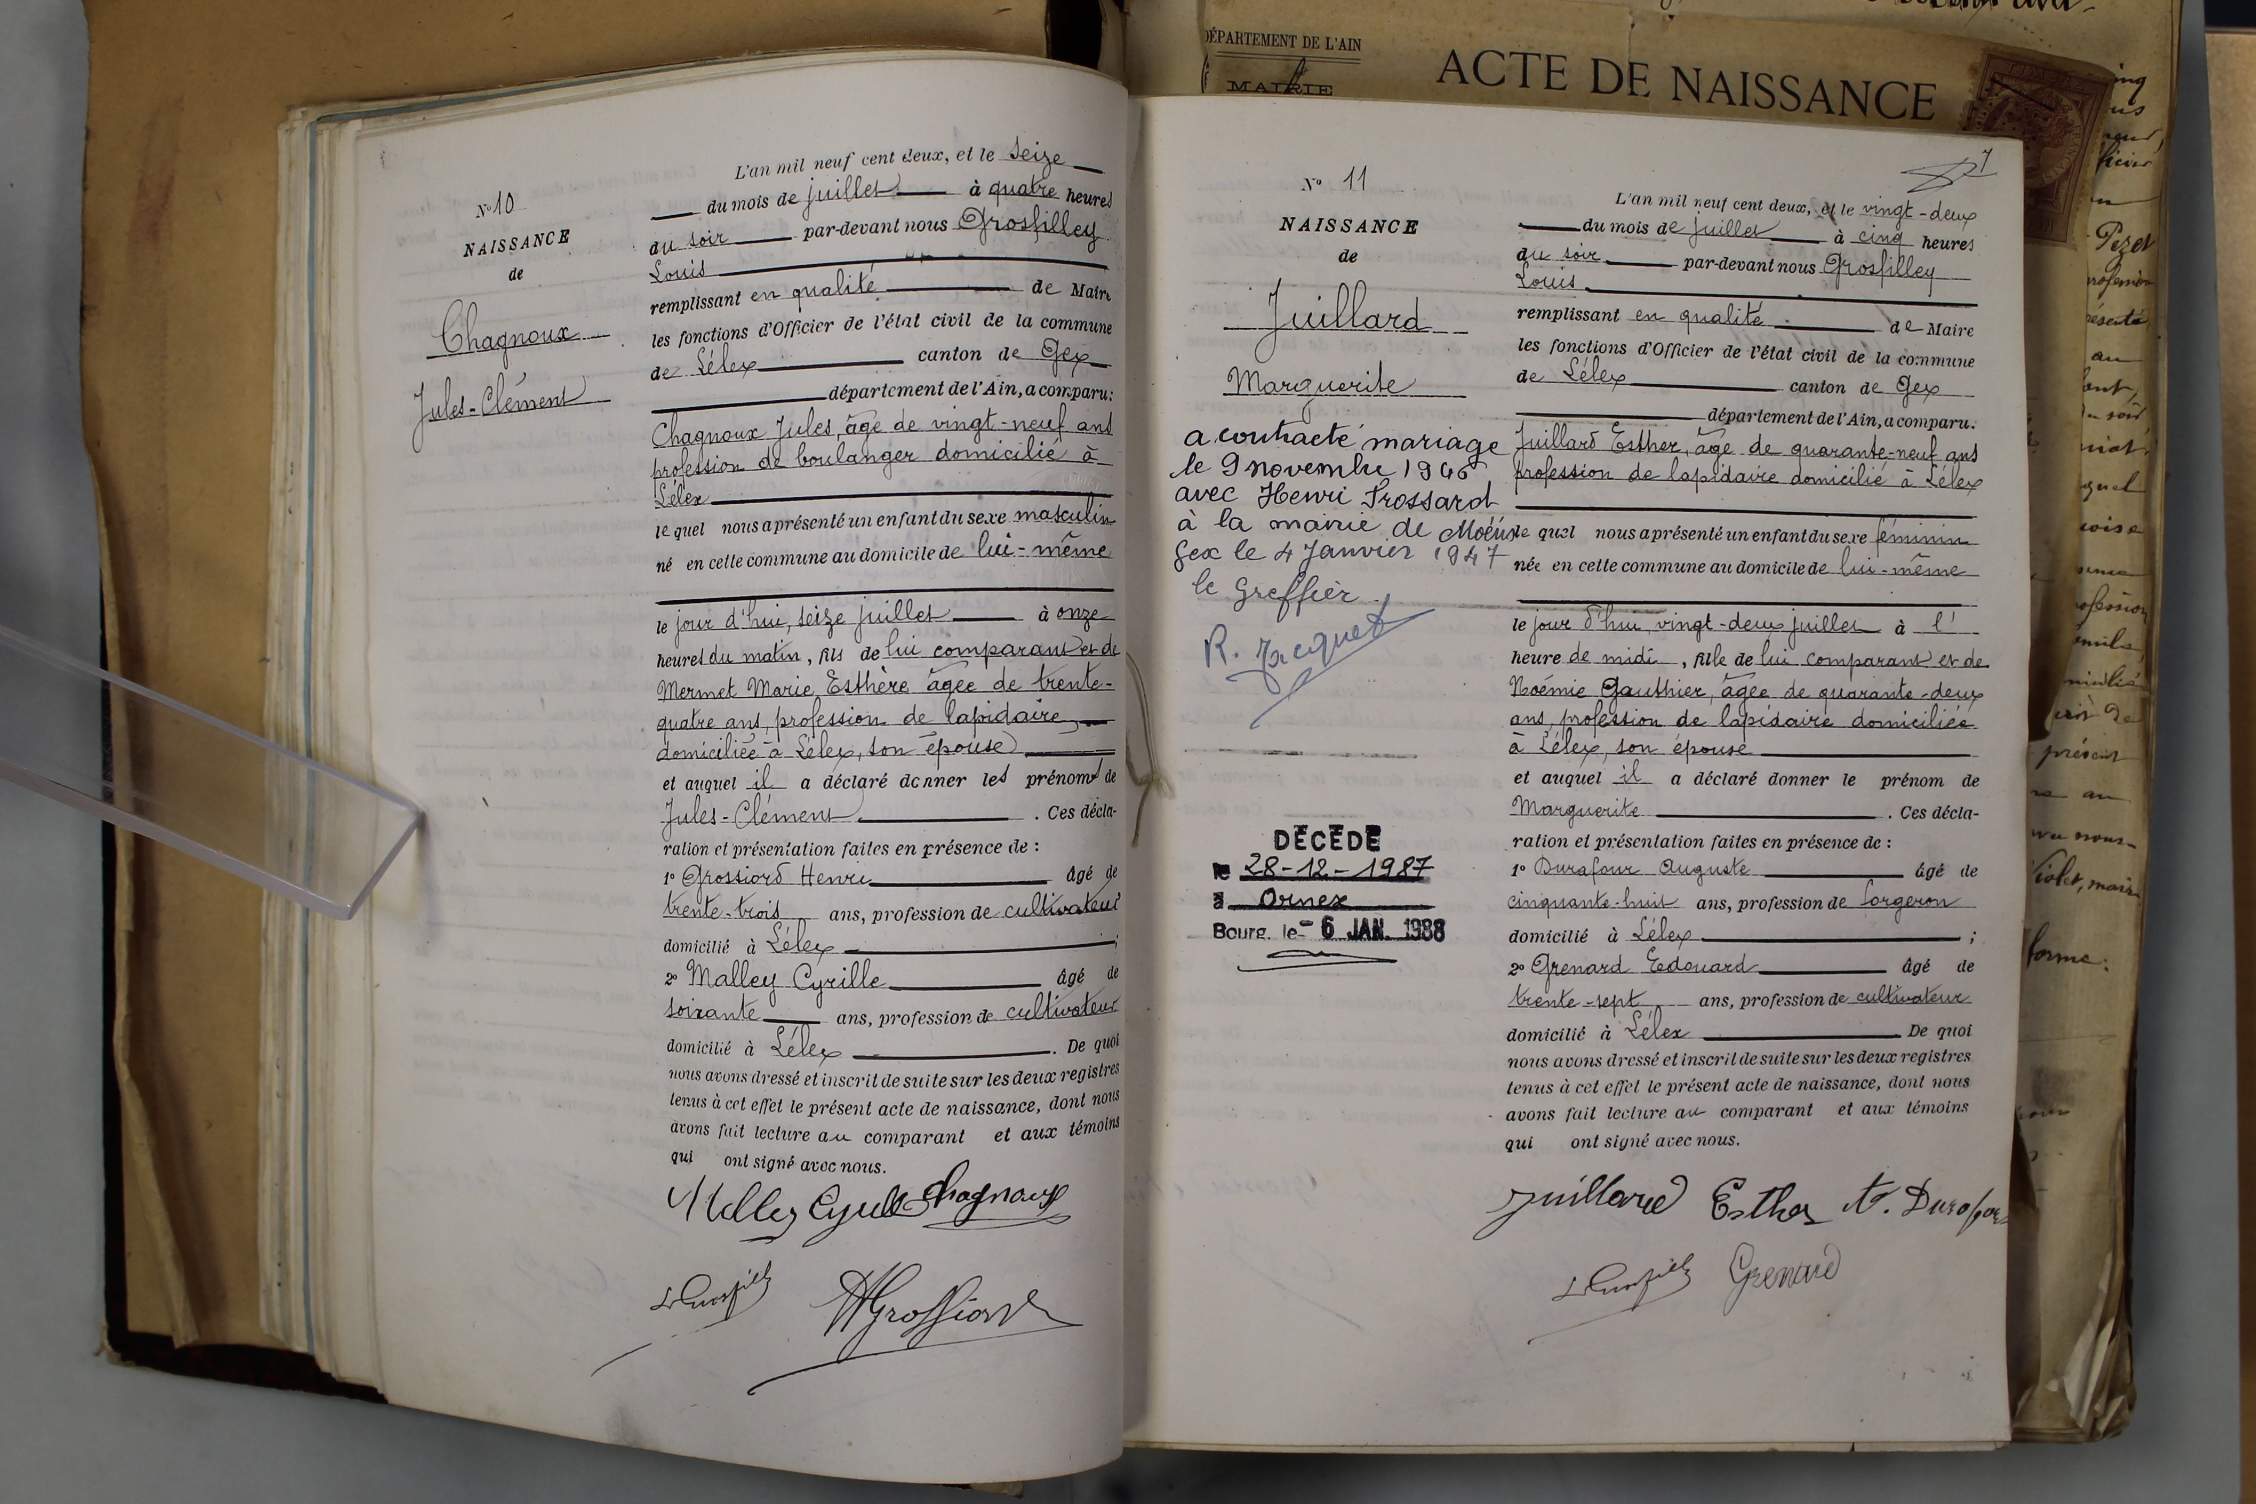 N° 10
NAISSANCE
de
Chagnoux
Jules-Clément
L'an mil neuf cent deux, et le seize
du mois de juillet à quatre heures
du soir par-devant nous Grosfilley
Louis
remplissant en qualité de Maire
les fonctions d'Officier de l'état civil de la commune
de Lélex canton de Gex
département de l'Ain, a comparu:
Chagnoux Jules, âgé de vingt-neuf ans
profession de boulanger domicilié à
Lélex
lequel nous a présenté un enfant du sexe masculin
né en cette commune au domicile de lui-même
le jour d'hui, seize juillet à onze
heures du matin, fils de lui comparant et de
Mermet Marie Esthère âgée de trente-
quatre ans, profession de lapidaire,
domiciliée à Lélex, son épouse
et auquel il a déclaré donner les prénoms de
Jules-Clément. Ces décla-
ration et présentation faites en présence de :
1° Grossiord Henri âgé de
trente-trois ans, profession de cultivateur
domicilié à Lélex ;
2° Malley Cyrille âgé de
soixante ans, profession de cultivateur
domicilié à Lélex. De quoi
nous avons dressé et inscrit de suite sur les deux registres
tenus à cet effet le présent acte de naissance, dont nous
avons fait lecture au comparant et aux témoins
qui ont signé avec nous.
Malley Cyrille Chagnoux
HGrossiord
DÉPARTEMENT DE L'AIN
MAIRIE
ACTE DE NAISSANCE
7
N° 11
NAISSANCE
de
Juillard
Marguerite
a contracté mariage
le 9 novembre 1946
avec Henri Frossard
à la mairie de Moëns
Gex le 4 Janvier 1947
le Greffier
R. Jacquet
DÉCÉDÉ
le 28-12-1987
à Ornex
Bourg, le - 6 JAN. 1988
L'an mil neuf cent deux, et le vingt-deux
du mois de juillet à cinq heures
du soir par-devant nous Grosfilley
Louis
remplissant en qualité de Maire
les fonctions d'Officier de l'état civil de la commune
de Lélex canton de Gex
département de l'Ain, a comparu.
Juillard Esther, âgé de quarante-neuf ans
profession de lapidaire domicilié à Lélex
lequel nous a présenté un enfant du sexe féminin
née en cette commune au domicile de lui-même
le jour d'hui, vingt-deux juillet à l'
heure de midi, fille de lui comparant et de
Noémie Gauthier, âgée de quarante-deux
ans, profession de lapidaire domiciliée
à Lélex, son épouse
et auquel il a déclaré donner le prénom de
Marguerite. Ces décla-
ration et présentation faites en présence de :
1° Durafour Auguste âgé de
cinquante-huit ans, profession de forgeron
domicilié à Lélex ;
2° Grenard Edouard âgé de
trente-sept ans, profession de cultivateur
domicilié à Lélex De quoi
nous avons dressé et inscrit de suite sur les deux registres
tenus à cet effet le présent acte de naissance, dont nous
avons fait lecture au comparant et aux témoins
qui ont signé avec nous.
Juillard Esther A. Durafour
Grenard